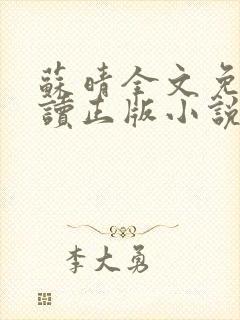 蘇晴全文免
讀正版小說
李大勇